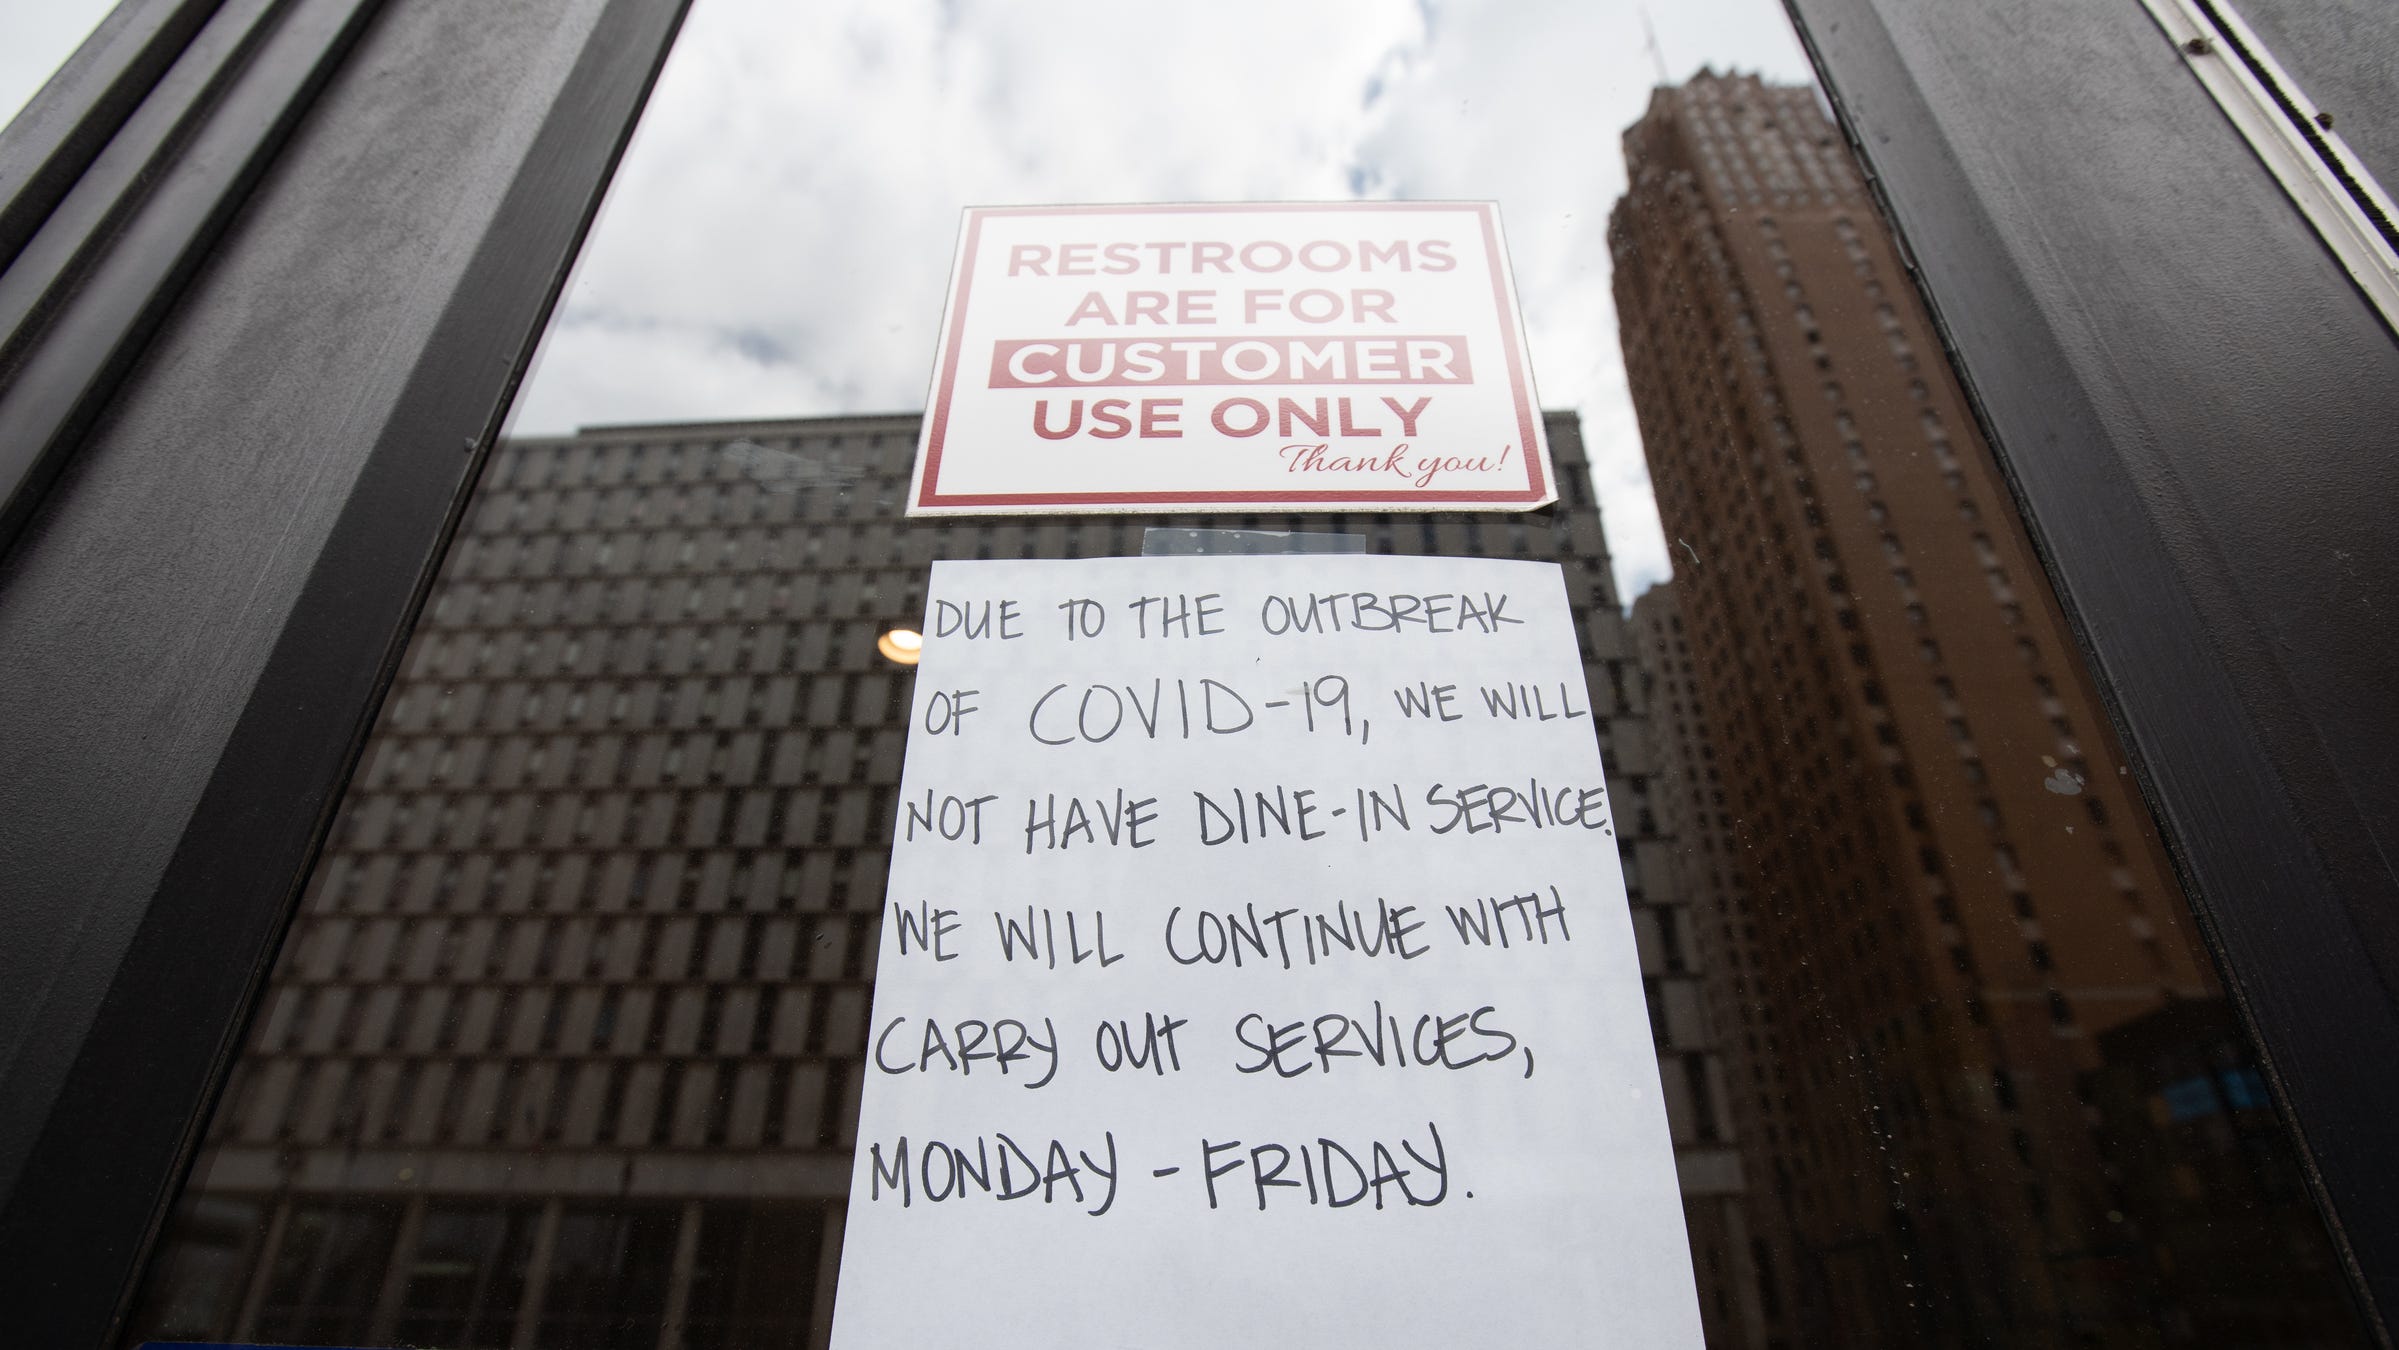 RESTROOMS
ARE FOR
CUSTOMER
USE ONLY
Thank you!
DUE TO THE OUTBREAK
OF COVID-19, WE WILL
NOT HAVE DINE-IN SERVICE.
WE WILL CONTINUE WITH
CARRY OUT SERVICES,
MONDAY - FRIDAY.